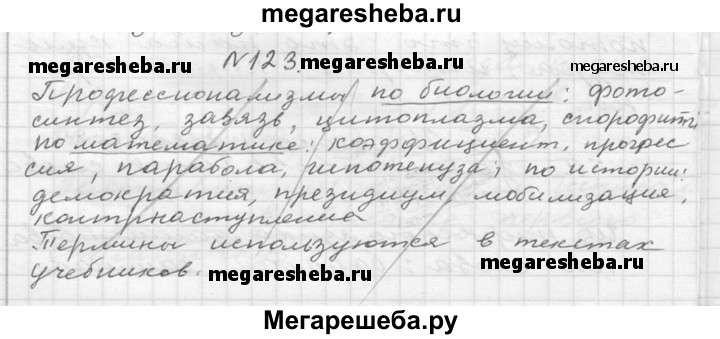 megaresheba.ru
№123.
megaresheba.ru megaresheba.ru
Профессионализмы по биологии: фото-
синтез, завязь, цитоплазма, спорофитт;
по математике: коэффициент, прогрес-
сия, парабола, гипотенуза; по истории:
демократия, президиум, мобилизация,
контрнаступление
Термины используются в текстах
учебников.
megaresheba.ru megaresheba.ru
Мегарешеба.ру